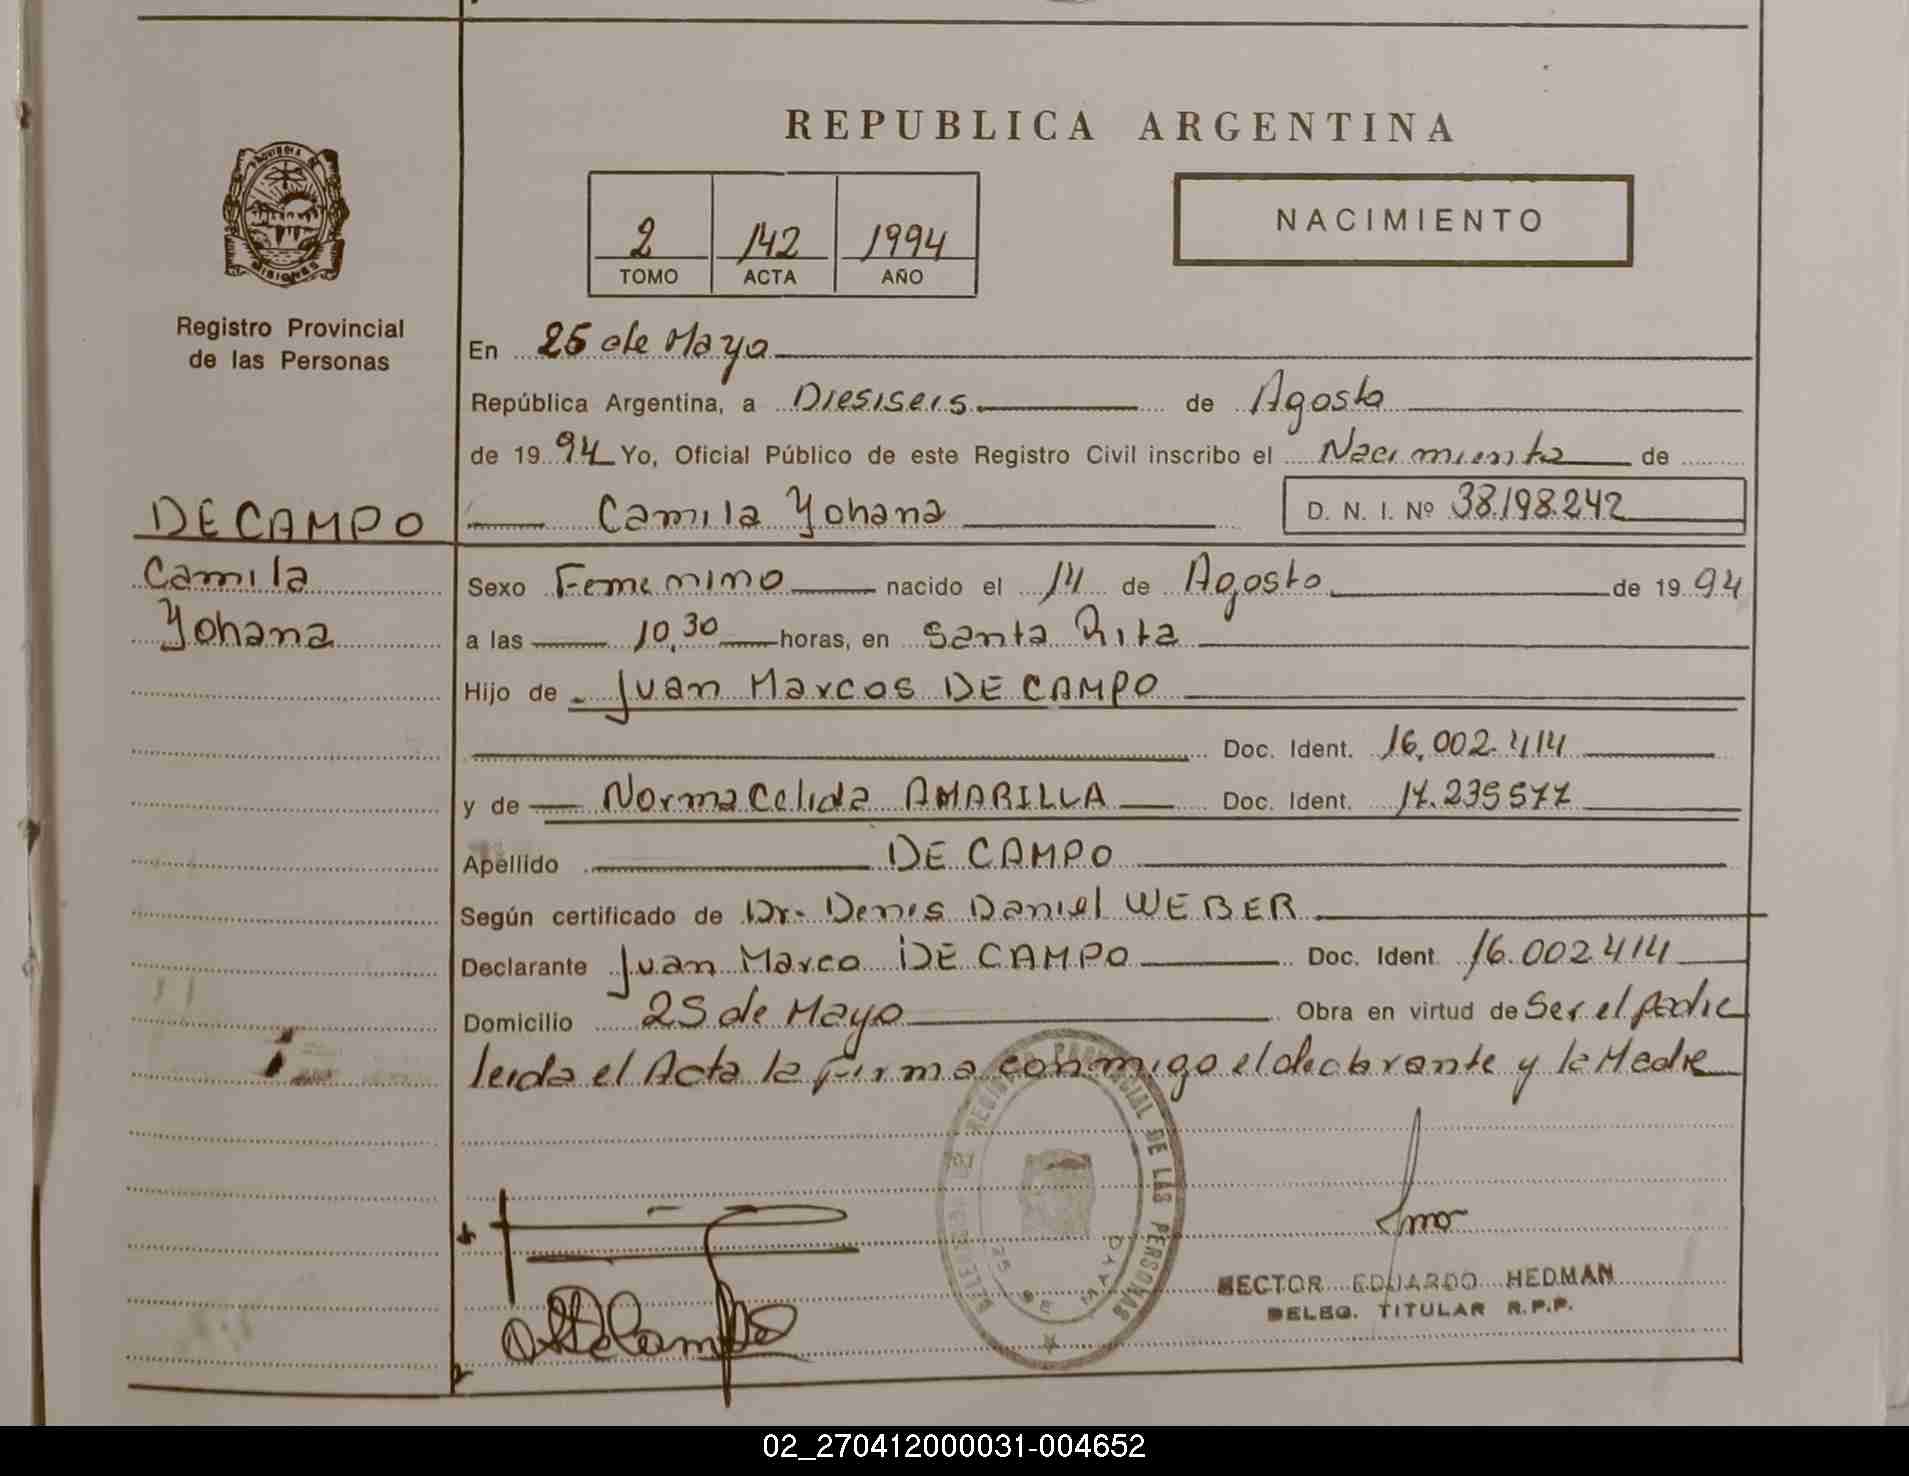 REPUBLICA ARGENTINA
PROVINCIA DE
MISIONES
Registro Provincial
de las Personas
2 142 1994
TOMO ACTA AÑO
NACIMIENTO
En 25 de Mayo
República Argentina, a Diesiseis de Agosto
de 19 94 Yo, Oficial Público de este Registro Civil inscribo el Nacimiento de
DE CAMPO
Camila
Yohana
Camila Yohana D. N. I. Nº 38.198.242
Sexo Femenino nacido el 14 de Agosto de 19 94
a las 10,30 horas, en Santa Rita
Hijo de Juan Marcos DE CAMPO
Doc. Ident. 16.002.414
y de Norma Celida AMARILLA Doc. Ident. 17.235577
Apellido DE CAMPO
Según certificado de Dr. Denis Daniel WEBER
Declarante Juan Marco DE CAMPO Doc. Ident 16.002414
Domicilio 25 de Mayo Obra en virtud de Ser el padre
leida el Acta la firma conmigo el declarante y la Madre
REGISTRO PROVINCIAL DE LAS PERSONAS
25 DE MAYO
HECTOR EDUARDO HEDMAN
DELEG. TITULAR R.P.P.
02_270412000031-004652